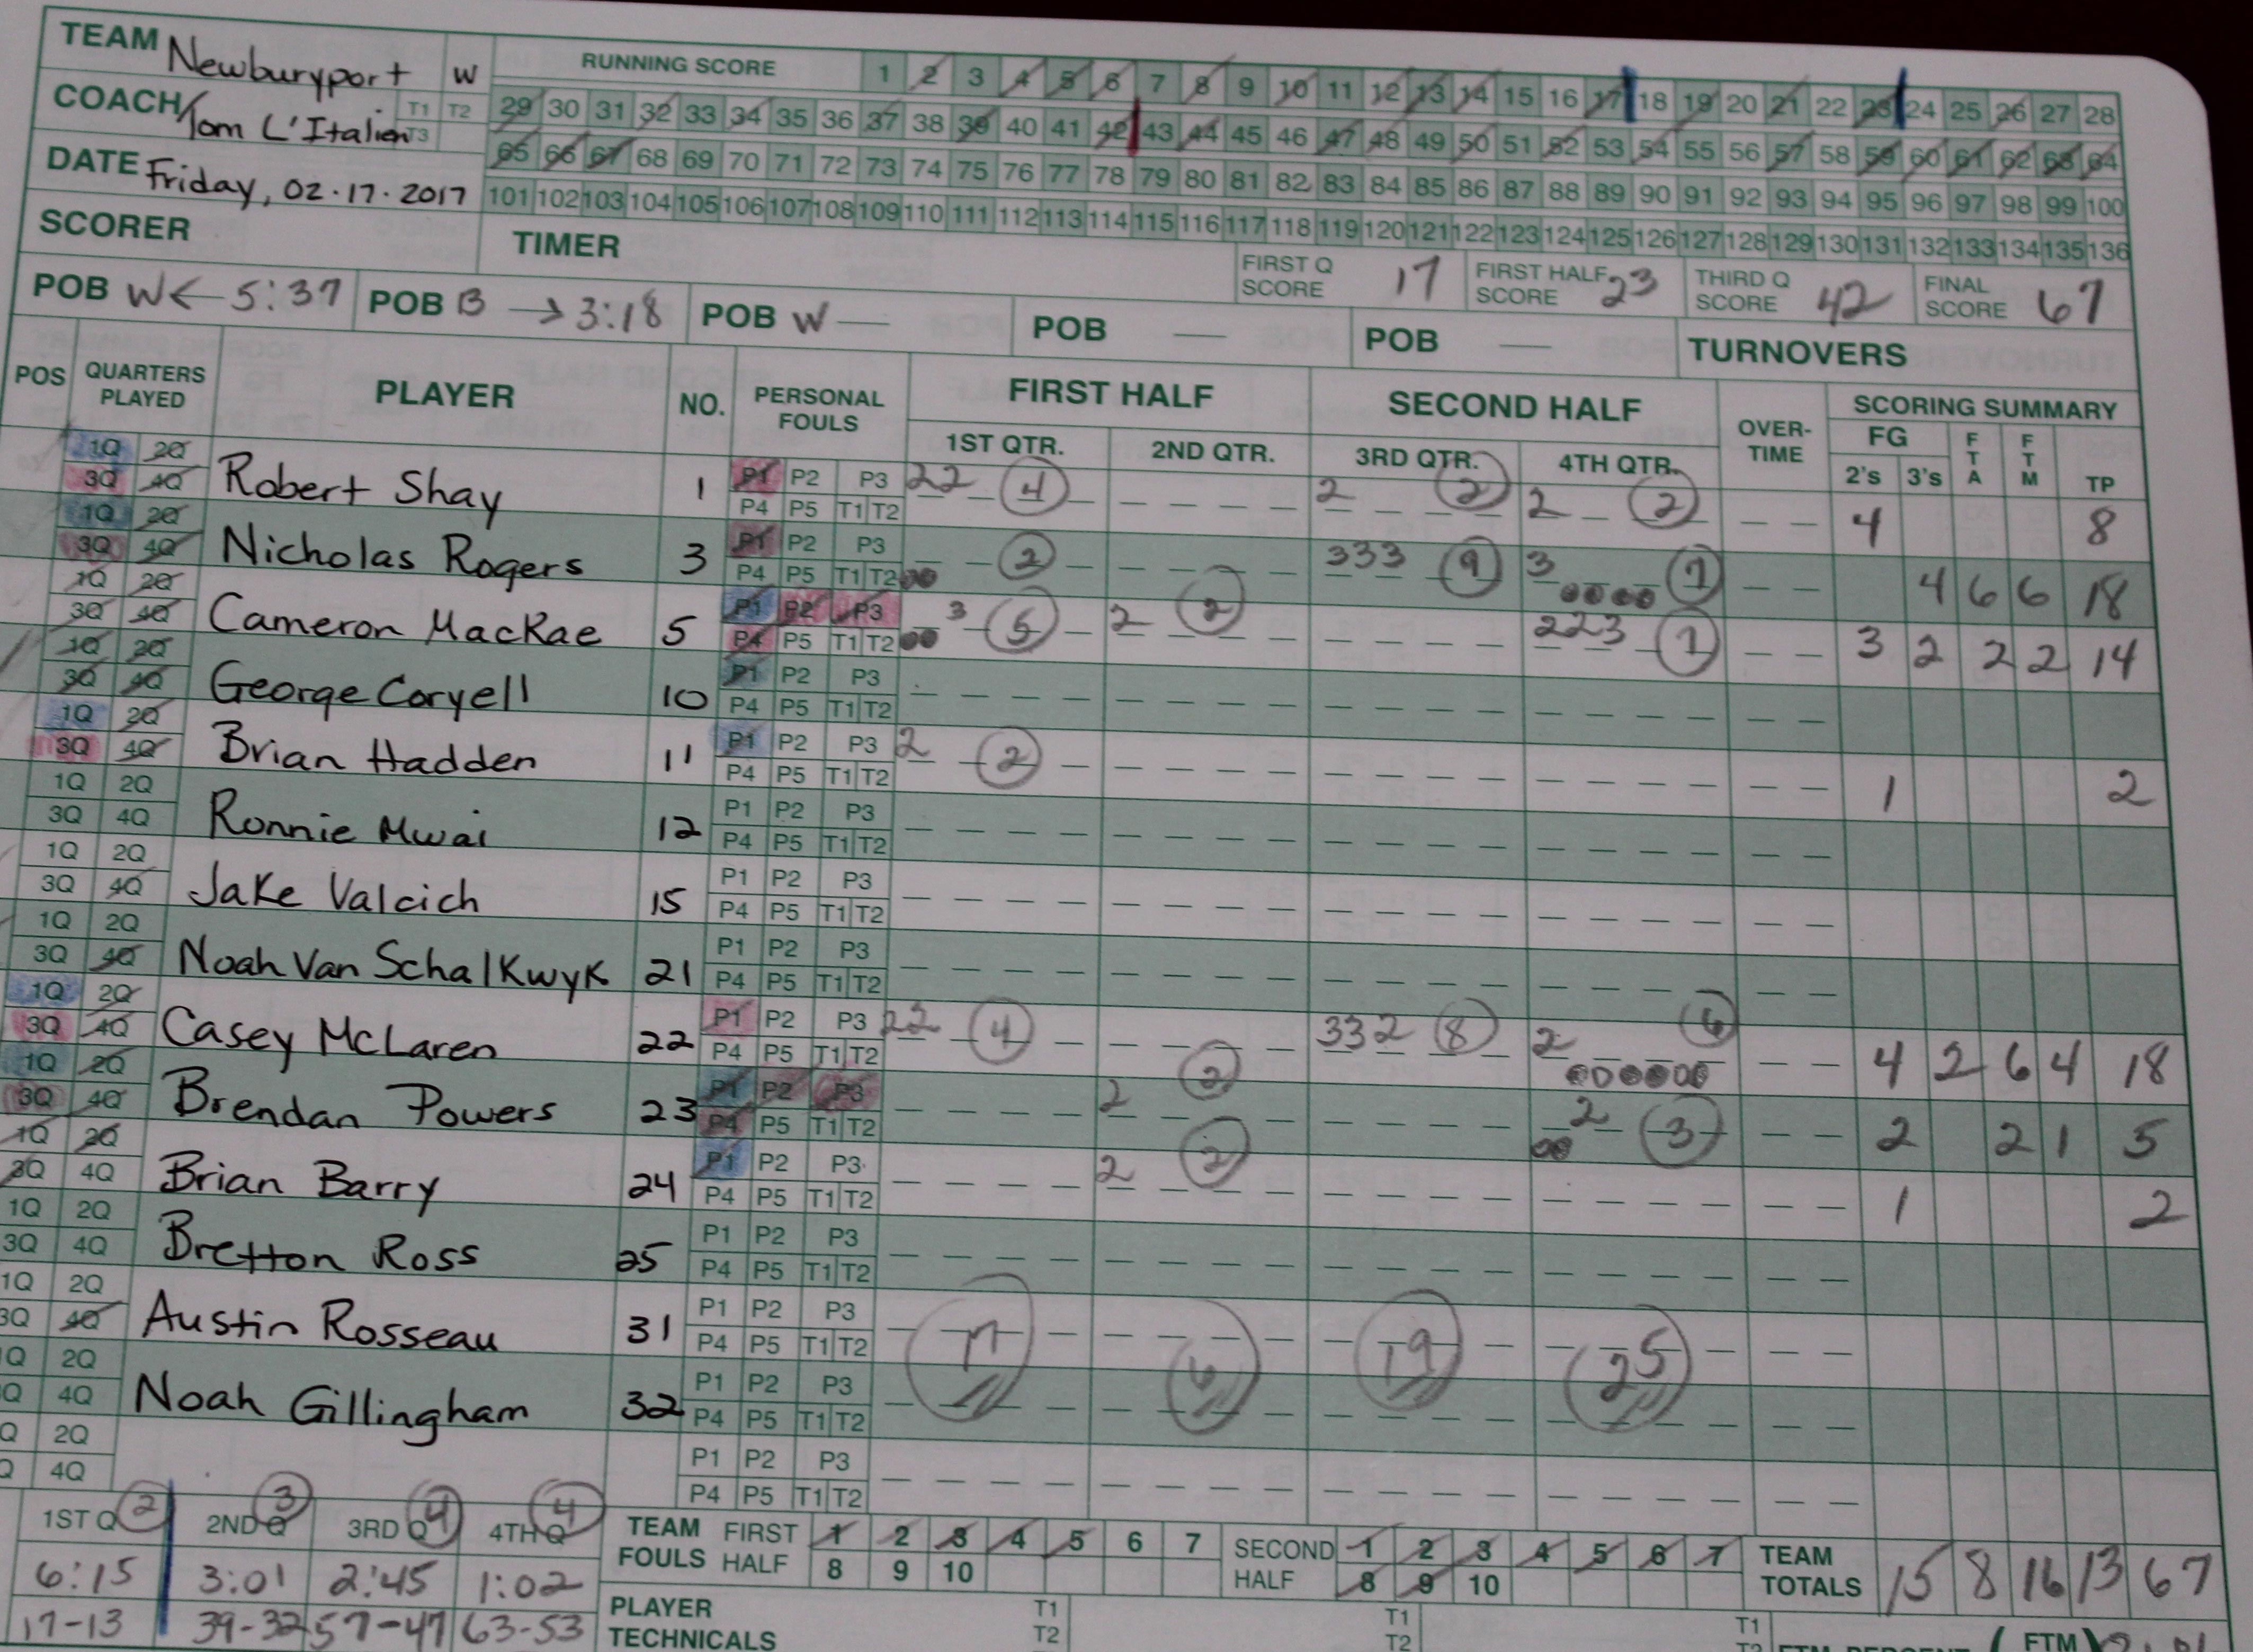 TEAM Newburyport W RUNNING SCORE 1 2 3 4 5 6 7 8 9 10 11 12 13 14 15 16 17 18 19 20 21 22 23 24 25 26 27 28
COACH Tom L'Italien T1 T2 T3 29 30 31 32 33 34 35 36 37 38 39 40 41 42 43 44 45 46 47 48 49 50 51 52 53 54 55 56 57 58 59 60 61 62 63 64
65 66 67 68 69 70 71 72 73 74 75 76 77 78 79 80 81 82 83 84 85 86 87 88 89 90 91 92 93 94 95 96 97 98 99 100
DATE Friday, 02.17.2017 101 102 103 104 105 106 107 108 109 110 111 112 113 114 115 116 117 118 119 120 121 122 123 124 125 126 127 128 129 130 131 132 133 134 135 136
SCORER TIMER FIRST Q SCORE 17 FIRST HALF SCORE 23 THIRD Q SCORE 42 FINAL SCORE 67
POB W ← 5:37 POB B → 3:18 POB W — POB — POB — TURNOVERS
POS QUARTERS PLAYED PLAYER NO. PERSONAL FOULS FIRST HALF SECOND HALF OVER-TIME SCORING SUMMARY
1ST QTR. 2ND QTR. 3RD QTR. 4TH QTR. FG 2's 3's FTA FTM TP
1Q 2Q 3Q 4Q Robert Shay 1 P1 P2 P3 P4 P5 T1 T2 22 4 2 2 2 2 4 8
1Q 2Q 3Q 4Q Nicholas Rogers 3 P1 P2 P3 P4 P5 T1 T2 2 333 9 3 7 4 6 6 18
1Q 2Q 3Q 4Q Cameron MacRae 5 P1 P2 P3 P4 P5 T1 T2 3 5 2 2 223 7 3 2 2 2 14
1Q 2Q 3Q 4Q George Coryell 10 P1 P2 P3 P4 P5 T1 T2
1Q 2Q 3Q 4Q Brian Hadden 11 P1 P2 P3 P4 P5 T1 T2 2 2 1 2
1Q 2Q 3Q 4Q Ronnie Mwai 12 P1 P2 P3 P4 P5 T1 T2
1Q 2Q 3Q 4Q Jake Valcich 15 P1 P2 P3 P4 P5 T1 T2
1Q 2Q 3Q 4Q Noah Van Schalkwyk 21 P1 P2 P3 P4 P5 T1 T2
1Q 2Q 3Q 4Q Casey McLaren 22 P1 P2 P3 P4 P5 T1 T2 22 4 332 8 2 6 4 2 6 4 18
1Q 2Q 3Q 4Q Brendan Powers 23 P1 P2 P3 P4 P5 T1 T2 2 2 2 3 2 2 1 5
1Q 2Q 3Q 4Q Brian Barry 24 P1 P2 P3 P4 P5 T1 T2 2 2 1 2
1Q 2Q 3Q 4Q Bretton Ross 25 P1 P2 P3 P4 P5 T1 T2
1Q 2Q 3Q 4Q Austin Rosseau 31 P1 P2 P3 P4 P5 T1 T2 17 6 19 25
Q 2Q Q 4Q Noah Gillingham 32 P1 P2 P3 P4 P5 T1 T2
Q 2Q Q 4Q P1 P2 P3 P4 P5 T1 T2
1ST Q 2 2ND Q 3 3RD Q 4 4TH Q 4 TEAM FOULS FIRST HALF 1 2 3 4 5 6 7 8 9 10 SECOND HALF 1 2 3 4 5 6 7 8 9 10 TEAM TOTALS 15 8 16 13 67
6:15 3:01 2:45 1:02
17-13 39-32 57-47 63-53 PLAYER TECHNICALS T1 T2 T1 T2 T1 FTM